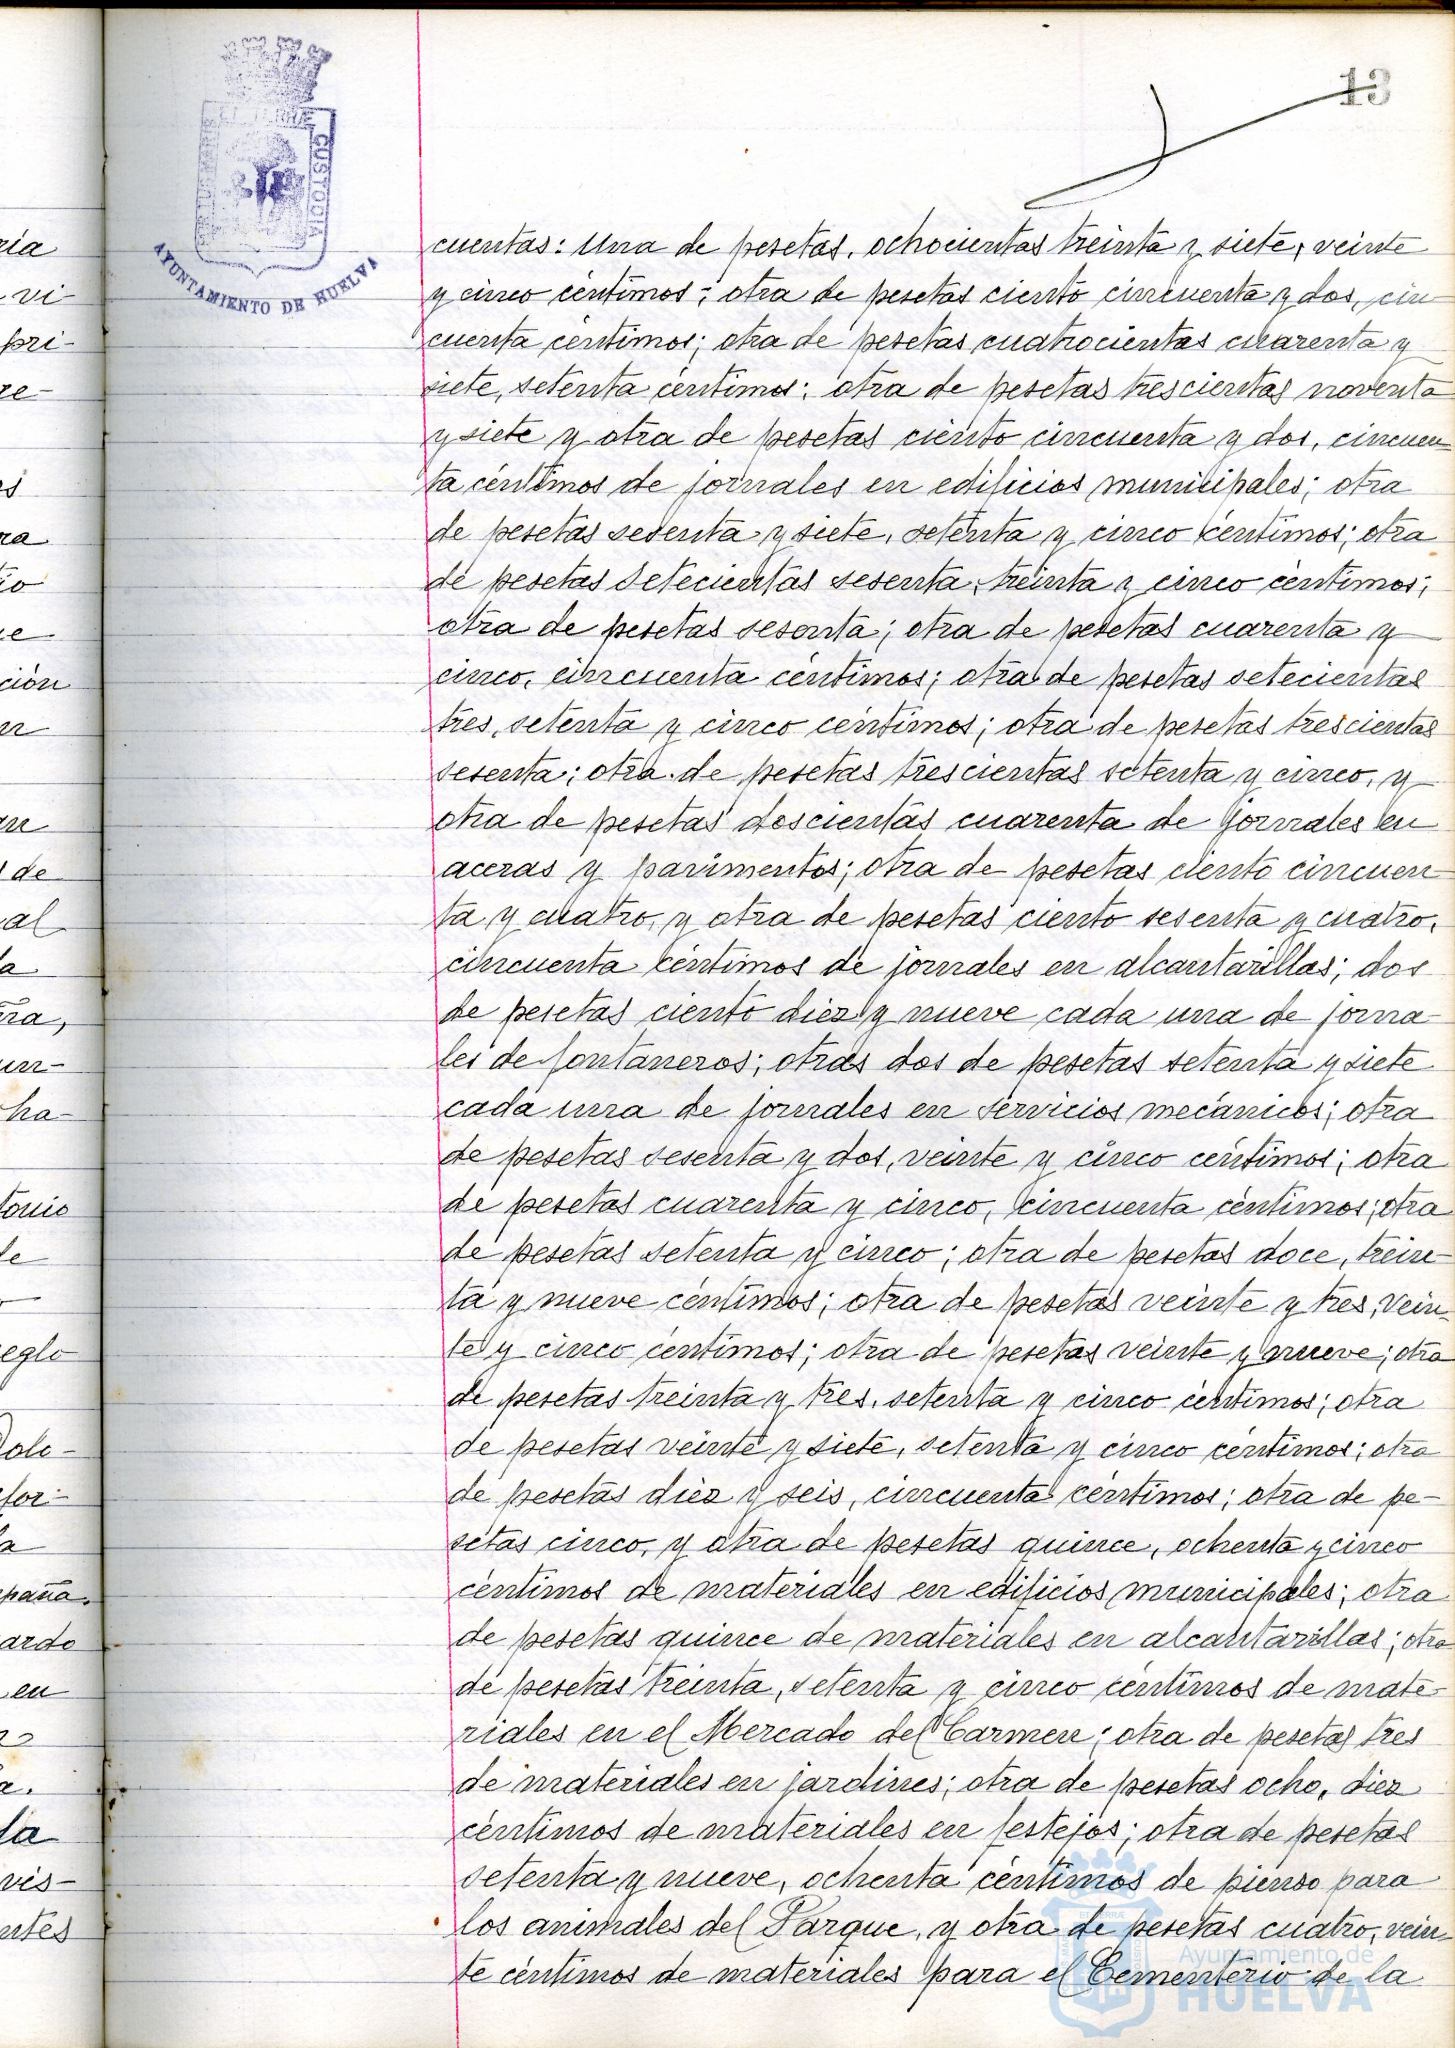 13
ET TERRÆ CUSTODIA
AYUNTAMIENTO DE HUELVA
cuentas: Una de pesetas, ochocientas treinta y siete, veinte
y cinco céntimos; otra de pesetas ciento cincuenta y dos, cin-
cuenta céntimos; otra de pesetas cuatrocientas cuarenta y
siete, setenta céntimos; otra de pesetas trescientas noventa
y siete y otra de pesetas ciento cincuenta y dos, cincuen-
ta céntimos de jornales en edificios municipales; otra
de pesetas sesenta y siete, setenta y cinco céntimos; otra
de pesetas setecientas sesenta, treinta y cinco céntimos;
otra de pesetas sesenta; otra de pesetas cuarenta y
cinco, cincuenta céntimos; otra de pesetas setecientas
tres, setenta y cinco céntimos; otra de pesetas trescientas
sesenta; otra de pesetas trescientas setenta y cinco, y
otra de pesetas doscientas cuarenta de jornales en
aceras y pavimentos; otra de pesetas ciento cincuen-
ta y cuatro, y otra de pesetas ciento sesenta y cuatro,
cincuenta céntimos de jornales en alcantarillas; dos
de pesetas ciento diez y nueve cada una de jorna-
les de fontaneros; otras dos de pesetas setenta y siete
cada una de jornales en servicios mecánicos; otra
de pesetas sesenta y dos, veinte y cinco céntimos; otra
de pesetas cuarenta y cinco, cincuenta céntimos; otra
de pesetas setenta y cinco; otra de pesetas doce, trein-
ta y nueve céntimos; otra de pesetas veinte y tres, vein-
te y cinco céntimos; otra de pesetas veinte y nueve; otra
de pesetas treinta y tres, setenta y cinco céntimos; otra
de pesetas veinte y siete, setenta y cinco céntimos; otra
de pesetas diez y seis, cincuenta céntimos; otra de pe-
setas cinco, y otra de pesetas quince, ochenta y cinco
céntimos de materiales en edificios municipales; otra
de pesetas quince de materiales en alcantarillas; otra
de pesetas treinta, setenta y cinco céntimos de mate-
riales en el Mercado del Carmen; otra de pesetas tres
de materiales en jardines; otra de pesetas ocho, diez
céntimos de materiales en festejos; otra de pesetas
setenta y nueve, ochenta céntimos de pienso para
los animales del Parque, y otra de pesetas cuatro, vein-
te céntimos de materiales para el Cementerio de la
Ayuntamiento de
HUELVA